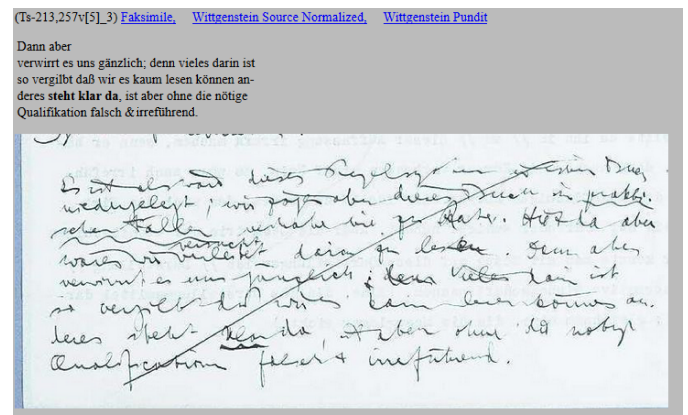 (Ts-213,257v[5]_3) Faksimile, Wittgenstein Source Normalized, Wittgenstein Pundit
Dann aber
verwirrt es uns gänzlich; denn vieles darin ist
so vergilbt daß wir es kaum lesen können an-
deres steht klar da, ist aber ohne die nötige
Qualifikation falsch & irreführend.
Es ist als wäre dieses Regelsystem in einem Buch
niedergelegt, wir aber dieses Buch in prakti-
schen Fällen nie zu Rate. Hie & da aber
wären wir versucht verleitet darin zu lesen Dann aber
verwirrt es uns gänzlich; denn vieles darin ist
so vergilbt daß wir es kaum lesen können an-
deres steht klar da, ist aber ohne die nötige
Qualification falsch & irreführend.